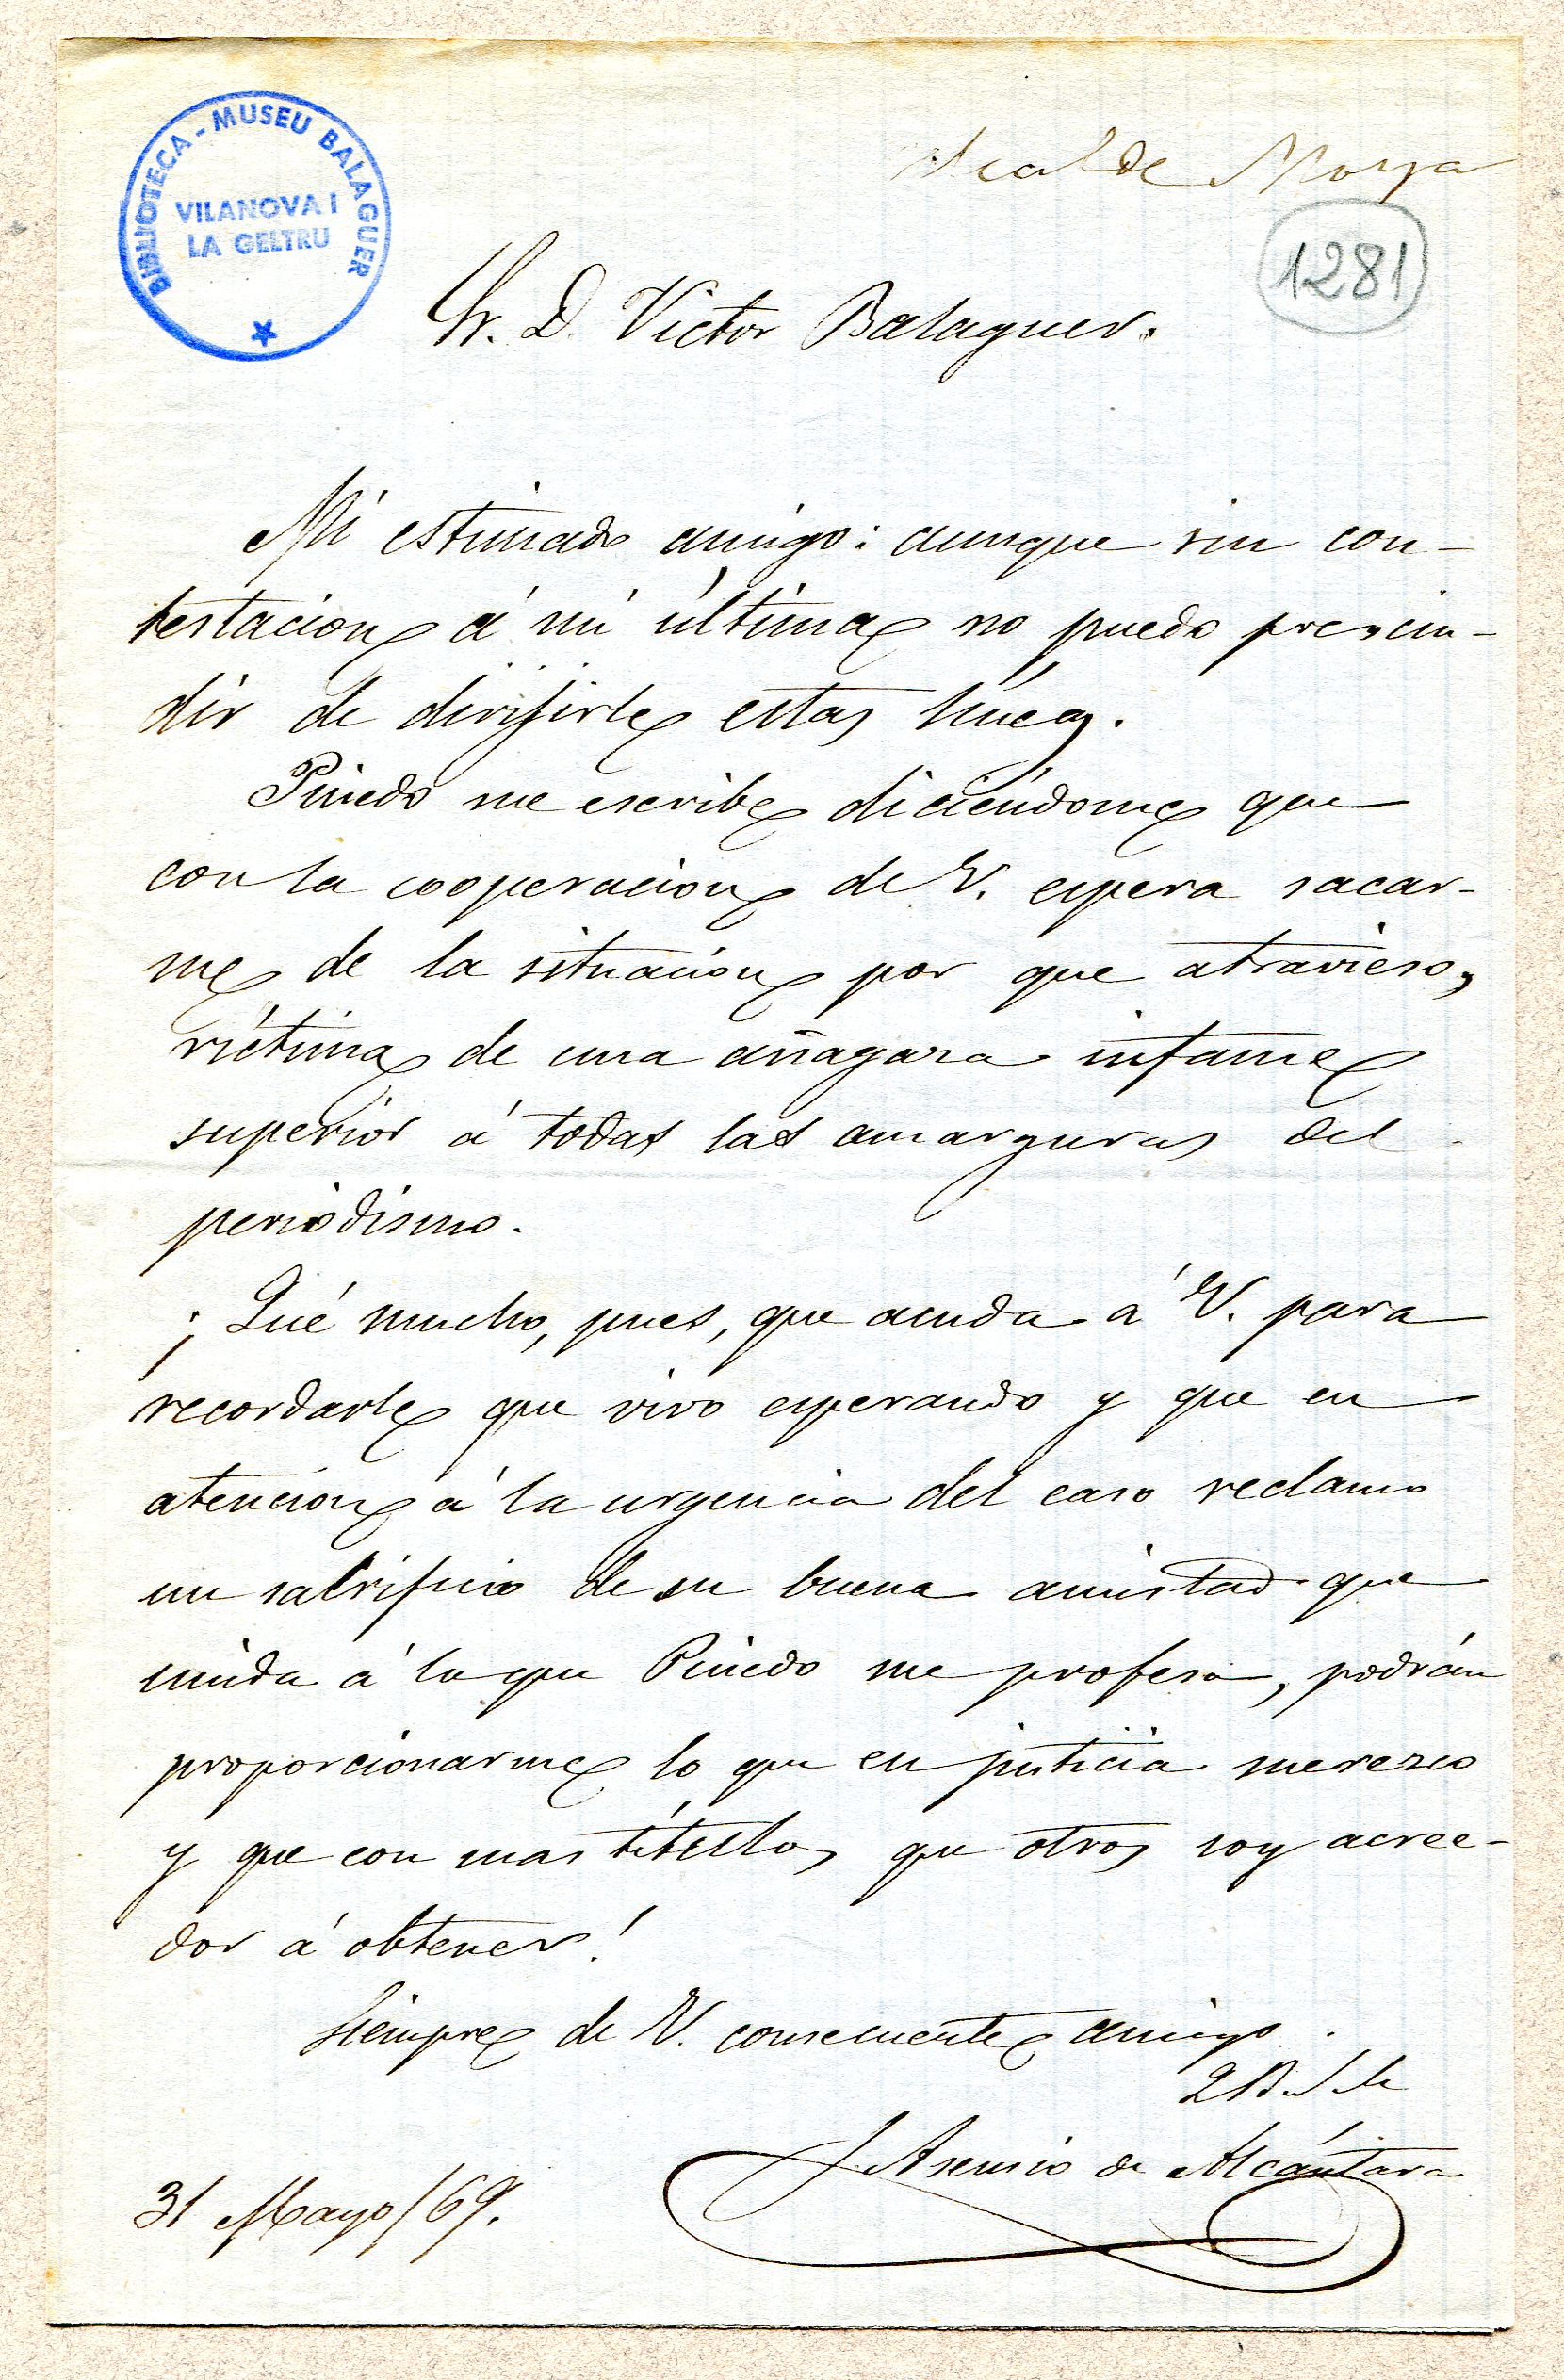 BIBLIOTECA - MUSEU BALAGUER
VILANOVA I
LA GELTRU
1281
Sr. D. Victor Balaguer.
Mi estimado amigo: aunque sin con-
testacion á mi última no puedo prescin-
dir de dirijirle estas líneas.
Pinedo me escribe diciéndome que
con la cooperacion de V. espera sacar-
me de la situacion por que atravieso,
víctima de una añagaza infame
superior á todas las amarguras del
periodismo.
¡Qué mucho, pues, que acuda á V. para
recordarle que vivo esperando y que en
atencion á la urgencia del caso reclamo
un sacrificio de su buena amistad que
unida á la que Pinedo me profesa, podrán
proporcionarme lo que en justicia merezco
y que con mas títulos que otros soy acree-
dor á obtener!
Siempre de V. consecuente amigo
J. Asensio de Alcántara
31 Mayo/69.